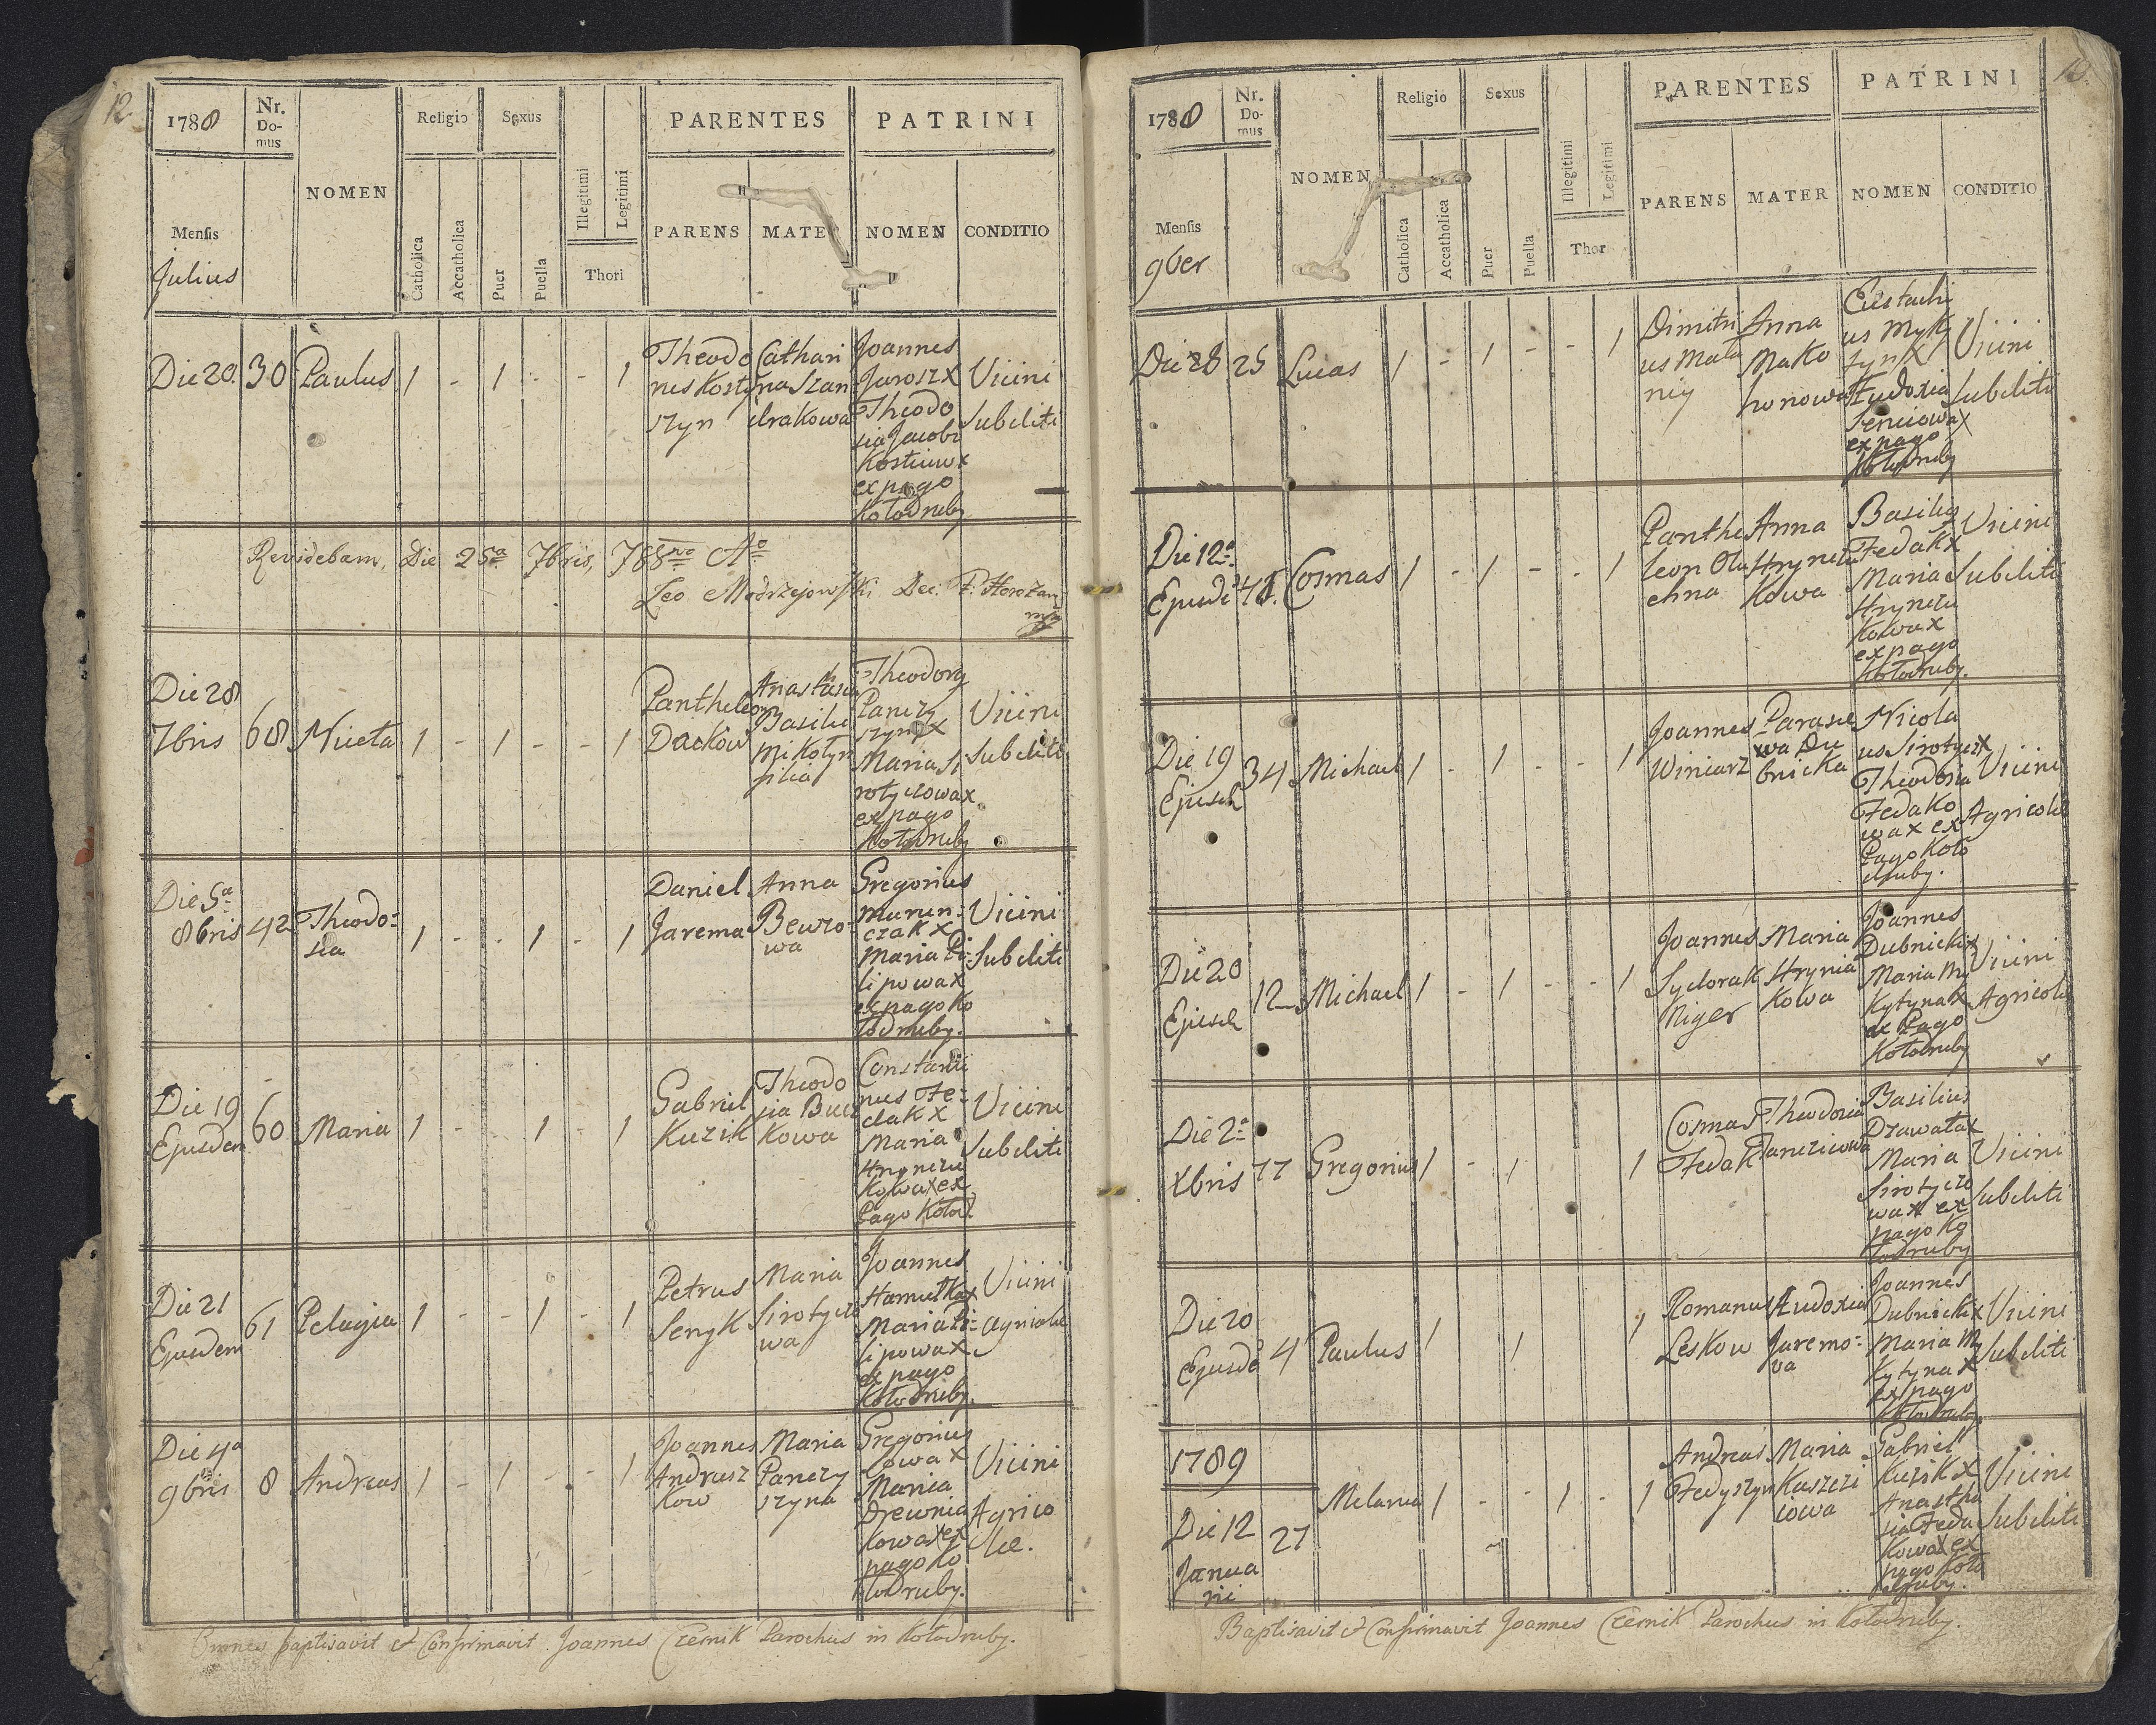 12
1788 Nr. Domus NOMEN Religio Sexus PARENTES PATRINI
Mensis Catholica Accatholica Puer Puella Illegitimi Legitimi Thori PARENS MATER NOMEN CONDITIO
Julius
Die 20. 30 Paulus 1 - 1 - - 1
Theodo
nus Kosty
szyn
Cathari
na Szan
drakowa
Joannes
Jarosz x
Theodo
sia Jacobi
Kostiuw x
ex pago
Kołodruby
Vicini
Subditi
Revidebam, Die 25a 7bris, 788vo Ao
Leo Modrzejowski Dec. F. Horożan
mp
Die 28
7bris 68 Niceta 1 - 1 - - 1
Pantheleon
Dackow
Anastasia
Basilii
Mikołyn
filia
Theodorg
Panczy
szyn x
Maria Si
rotyczowa x
ex pago
Kołodruby
Vicini
Subditi
Die 5a
8bris 42 Theodo-
sia 1 - - 1 - 1
Daniel
Jarema
Anna
Bewzo-
wa
Gregorius
Marun-
czak x
Maria Pi-
lipowa x
ex pago Ko
łodruby.
Vicini
Subditi
Die 19
Ejusdem 60 Maria 1 - - 1 - 1
Gabriel
Kuzik
Theodo
sia Bucz
Kowa
Constanti
nus Fe-
dak x
Maria
Hryneczu
Kowa x ex
Pago Kołod.
Vicini
Subditi
Die 21
Ejusdem 61 Pelagia 1 - - 1 - 1
Petrus
Senyk
Maria
Sirotyczo
wa
Joannes
Hamułka x
Maria Pi-
lipowa x
ex pago
Kołodruby.
Vicini
agricolae
Die 4a
9bris 8 Andreas 1 - 1 - - 1
Joannes
Andrusz
kow
Maria
Panczy
szyna
Gregorius
Sowa x
Maria
Drewnia
kowa x ex
pago Ko
łodruby.
Vicini
Agrico
lae.
Omnes baptisavit et Confirmavit Joannes Czernik Parochus in Kołodruby.
1788 Nr. Domus NOMEN Religio Sexus PARENTES PATRINI
Mensis Catholica Accatholica Puer Puella Illegitimi Legitimi Thor PARENS MATER NOMEN CONDITIO
9ber
Die 28 25 Lucas 1 - 1 - - 1
Dimitri
us Mala
niy
Anna
Mako
honowa
Eustachi
us Myky
tyn x
Eudoxia
Seniowa x
ex pago
Kołodruby
Vicini
Subditi
Die 12a
Ejusd Cosmas 1 - 1 - - 1
Panthe
leon Olu
chna
Anna
Hryneczu
Kowa
Basilig
Fedak x
Maria
Hryneczu
Kowa x
ex pago
Kołodruby.
Vicini
Subditi
Die 19
Ejusd 34 Michael 1 - 1 - - 1
Joannes
Winiarz
Parasc
wa Du
bnicka
Nicola
us Sirotycz x
Theodosia
Fedako
wa x ex
Pago Koło
druby.
Vicini
Agricolae
Die 20
Ejusd 12 Michael 1 - 1 - - 1
Joannes
Sydorak
Niger
Maria
Hrynia
Kowa
Joannes
Dubnicki x
Maria My
Kytyna x
ex Pago
Kołodruby
Vicini
Agricolae
Die 2a
Xbris 77 Gregorius 1 - 1 1
Cosmas
Fedak
Theodosia
Pancziowa
Basilius
Dzawała x
Maria
Sirotyczo
wa x ex
pago Ko
łodruby
Vicini
Subditi
Die 20
Ejusd 4 Paulus 1 1 1
Romanus
Leskow
Eudoxia
Jaremo-
va
Joannes
Dubnicki x
Maria My
Kytyna x
ex pago
Kołodruby.
Vicini
Subditi
1789
Die 12
Janua
rii 27 Melania 1 - - 1 - 1
Andreas
Fedyszyn
Maria
Kaszczi
iowa
Gabriel
Kuzik x
Anastha
sia Feda
Kowa x ex
pago Koło
druby.
Vicini
Subditi
Baptisavit et Confirmavit Joannes Czernik Parochus in Kołodruby.